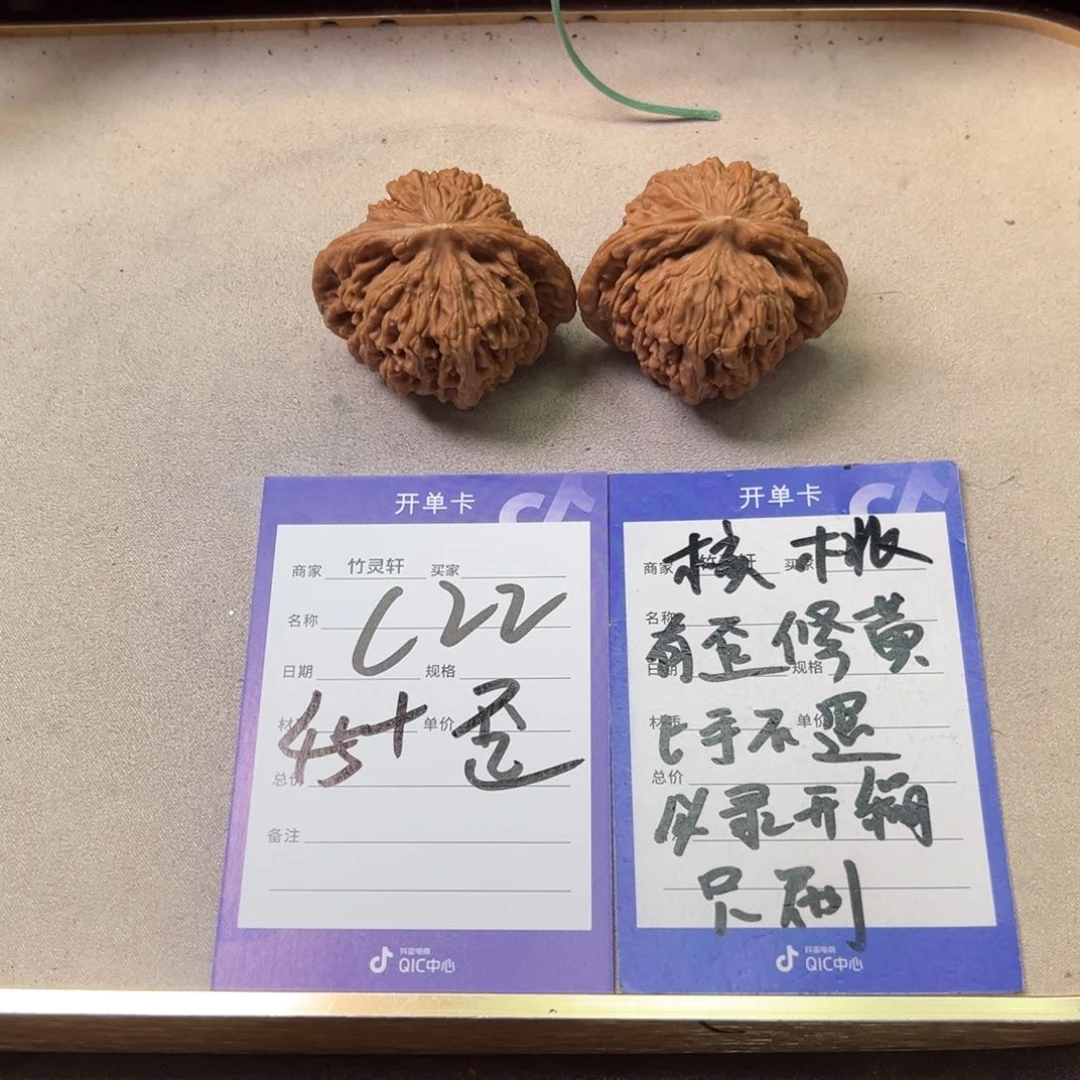 开单卡
商家 竹灵轩 买家
名称
L22
日期 规格
材 单价
45+ 歪
总价
备注
抖音电商
QIC中心
开单卡
商家 竹灵轩 买家
核桃
名称
有歪修黄
日期 规格
材质 单价
上手不退
总价
必录开箱
只刷
抖音电商
QIC中心